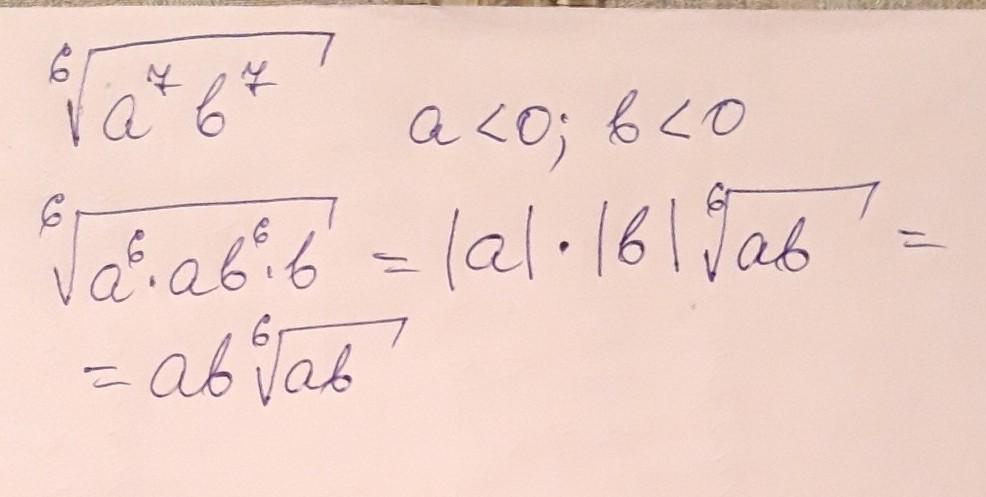 ⁶√(a⁷b⁷) a<0; b<0
⁶√(a⁶·ab⁶·b) = |a|·|b| ⁶√(ab) =
= ab ⁶√(ab)